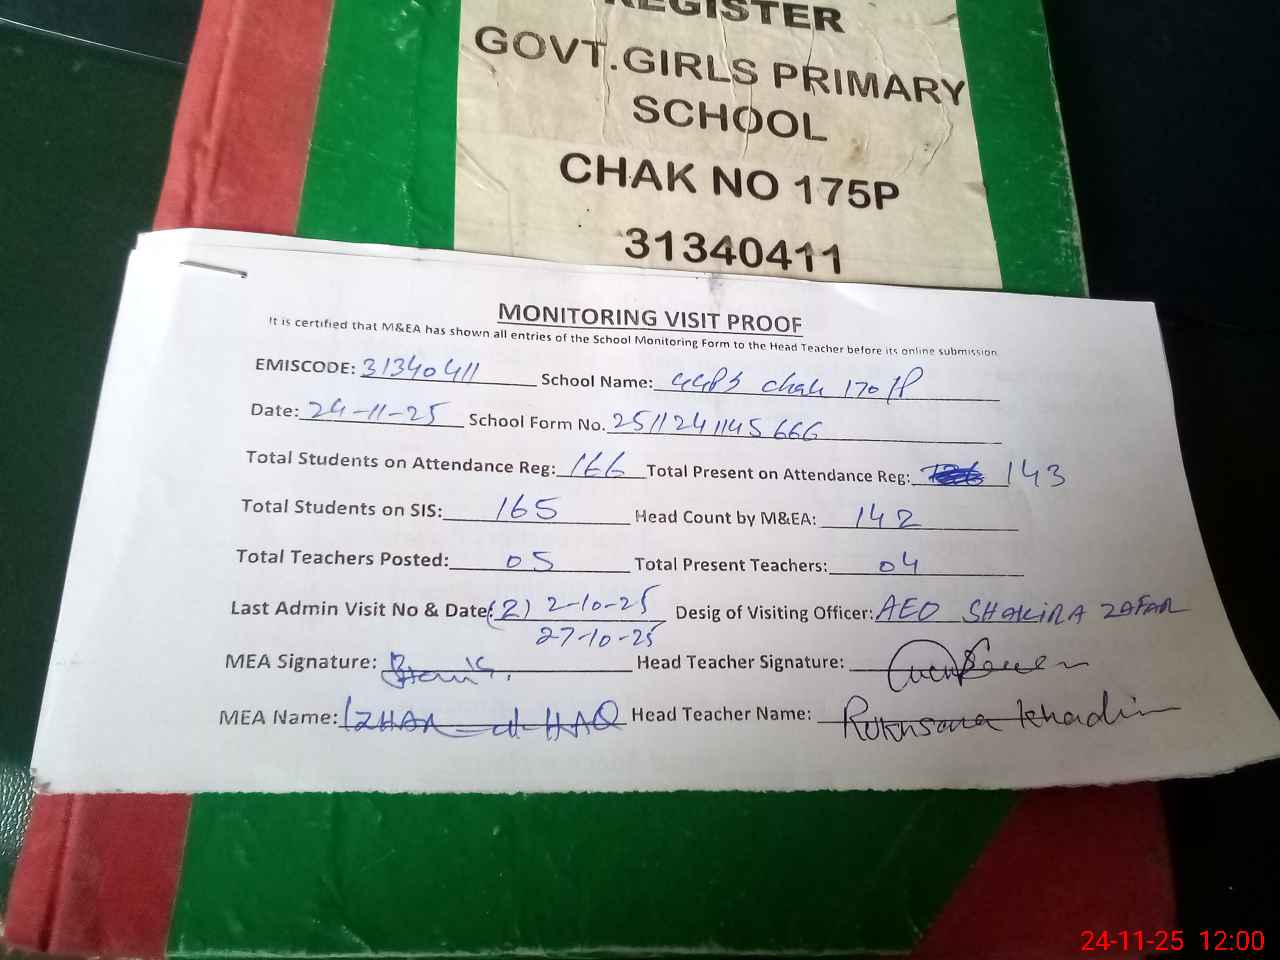 REGISTER
GOVT.GIRLS PRIMARY
SCHOOL
CHAK NO 175P
31340411
MONITORING VISIT PROOF
It is certified that M&EA has shown all entries of the School Monitoring Form to the Head Teacher before its online submission
EMISCODE: 31340411 School Name: GGPS Chak 170/P
Date: 24-11-25 School Form No. 2511241145666
Total Students on Attendance Reg: 166 Total Present on Attendance Reg: 143
Total Students on SIS: 165 Head Count by M&EA: 142
Total Teachers Posted: 05 Total Present Teachers: 04
Last Admin Visit No & Date: (2) 2-10-25 Desig of Visiting Officer: AEO SHAKIRA ZAFAR
27-10-25
MEA Signature: Head Teacher Signature:
MEA Name: IZHAR ul HAQ Head Teacher Name: Rukhsana Khadim
24-11-25 12:00